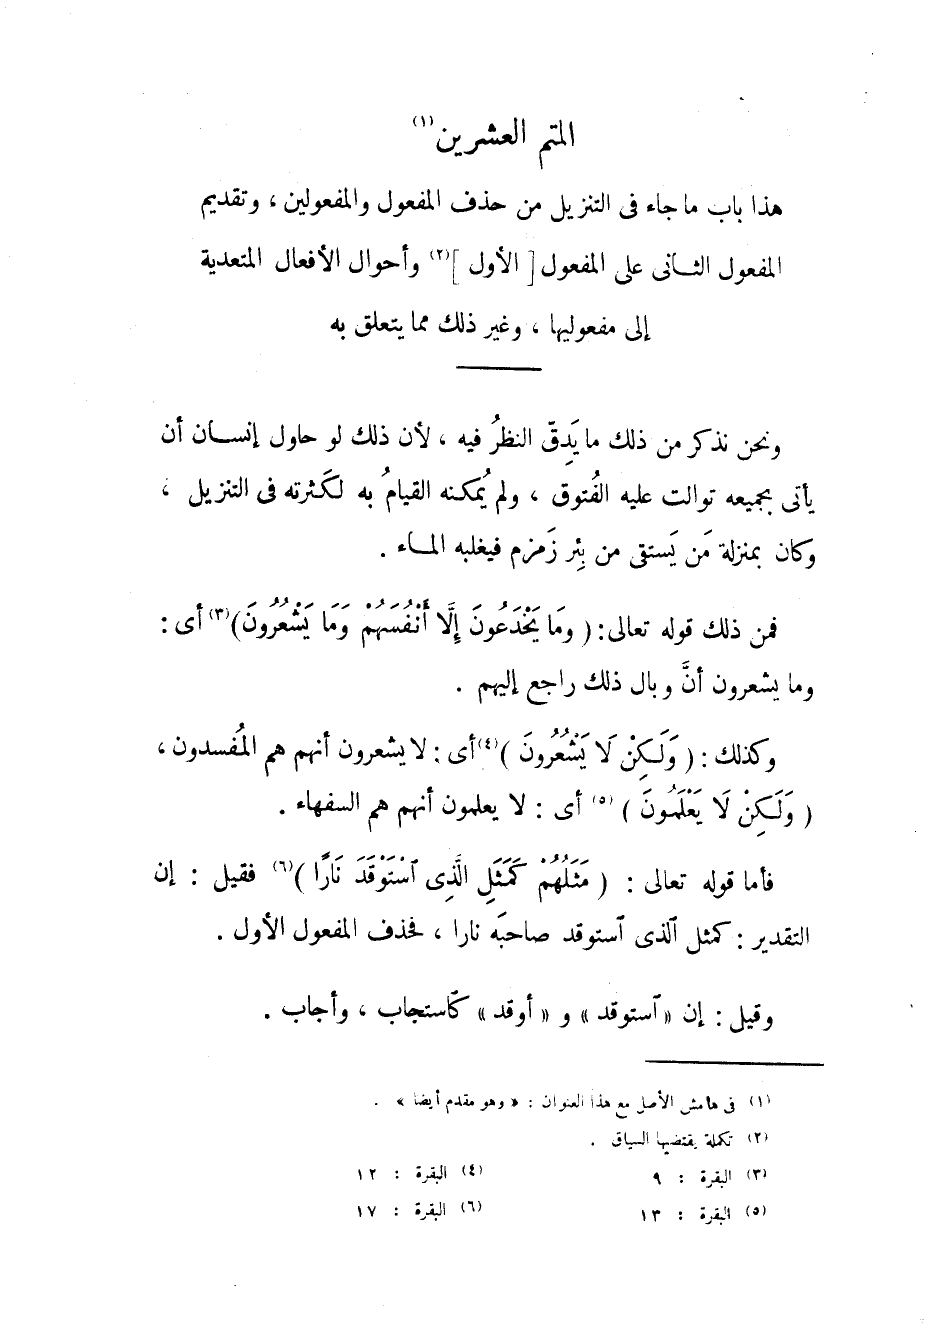 المتم العشرين(١)
هذا باب ما جاء فى التنزيل من حذف المفعول والمفعولين ، وتقديم
المفعول الثانى على المفعول [ الأول ](٢) وأحوال الأفعال المتعدية
إلى مفعوليها ، وغير ذلك مما يتعلق به
ونحن نذكر من ذلك ما يَدِقّ النظرُ فيه ، لأن ذلك لو حاول إنسان أن
يأتى بجميعه توالت عليه الفُتوق ، ولم يُمكنه القيامُ به لكَثرته فى التنزيل ،
وكان بمنزلة مَن يَستقى من بِئر زَمزم فيغلبه الماء .
فمن ذلك قوله تعالى : ( وَمَا يَخْدَعُونَ إِلَّا أَنْفُسَهُمْ وَمَا يَشْعُرُونَ)(٣) أى :
وما يشعرون أنَّ وبال ذلك راجع إليهم .
وكذلك : ( وَلَكِنْ لَا يَشْعُرُونَ )(٤) أى : لا يشعرون أنهم هم المُفسدون ،
( وَلَكِنْ لَا يَعْلَمُونَ ) (٥) أى : لا يعلمون أنهم هم السفهاء .
فأما قوله تعالى : ( مَثَلُهُمْ كَمَثَلِ الَّذِى ٱسْتَوْقَدَ نَارًا )(٦) فقيل : إن
التقدير : كمثل ٱلذى ٱستوقد صاحبَه نارا ، فحذف المفعول الأول .
وقيل : إن « ٱستوقد » و « أوقد » كٱستجاب ، وأجاب .
(١) فى هامش الأصل مع هذا العنوان : « وهو مقدم أيضا » .
(٢) تكملة يقتضيها السياق .
(٣) البقرة : ٩ (٤) البقرة : ١٢
(٥) البقرة : ١٣ (٦) البقرة : ١٧